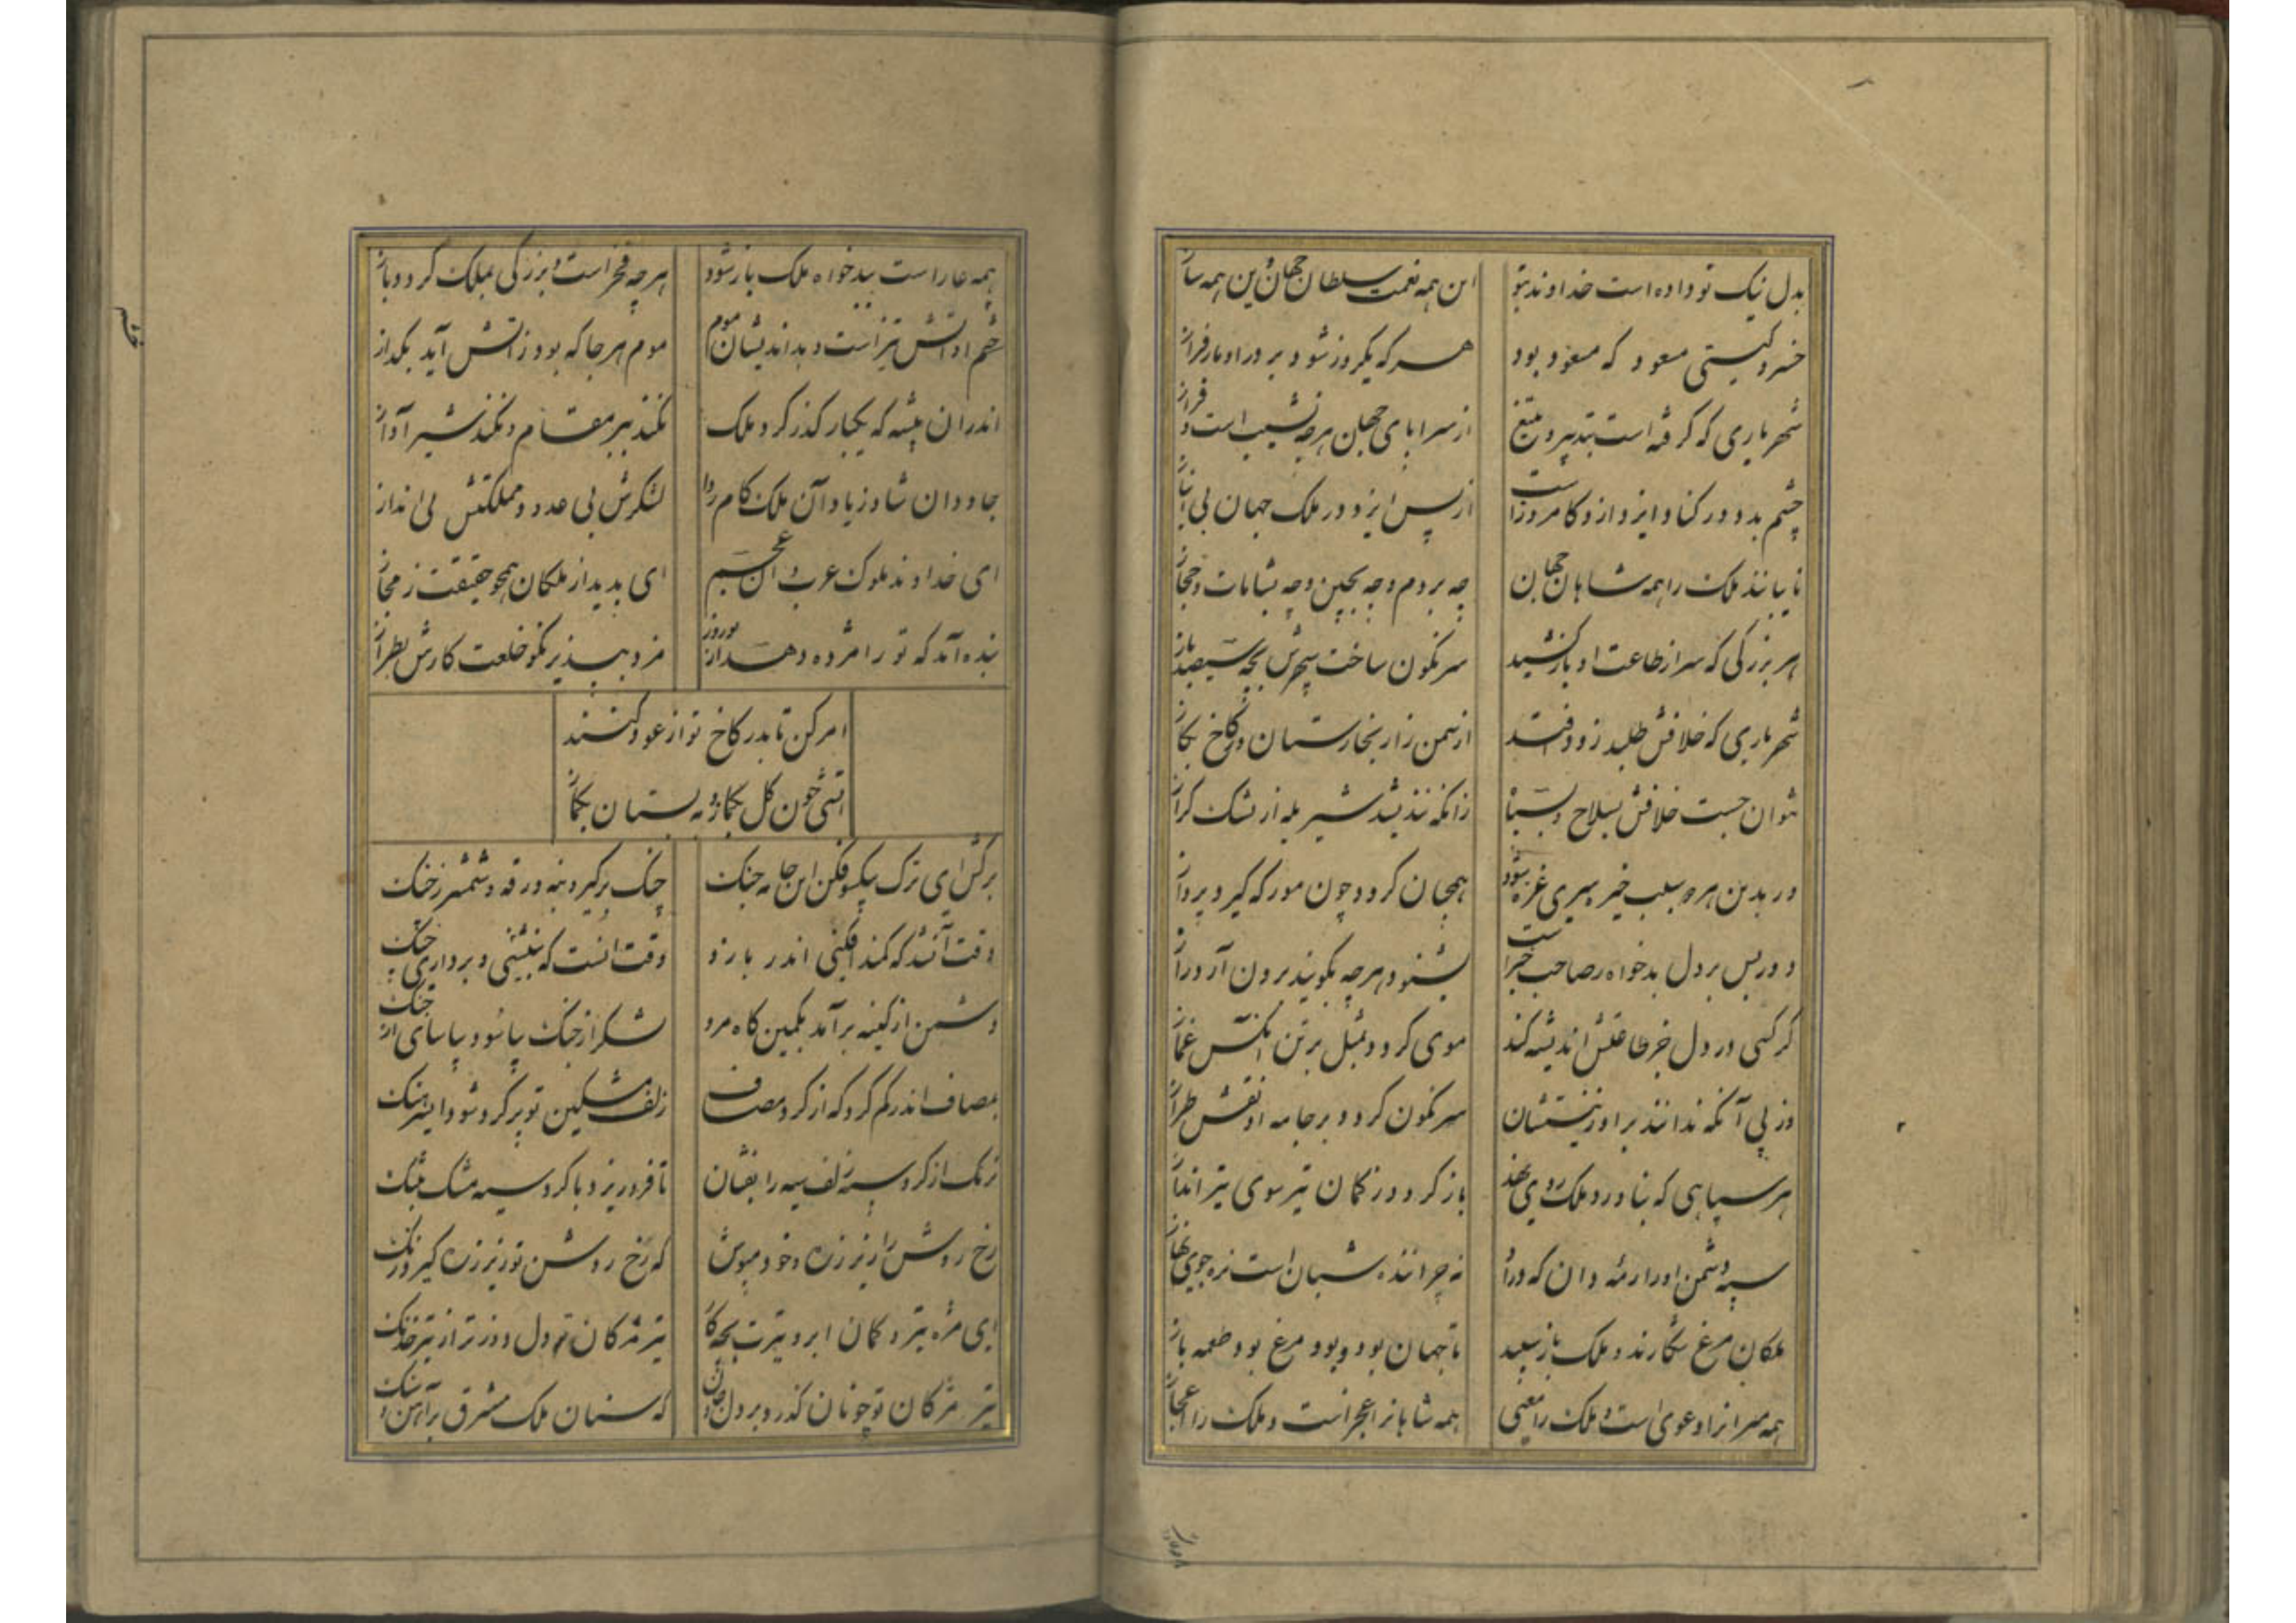 بدل نیک تو داده است خداوند بتو این همه نعمت سلطان جهان وین همه ساز
خسرو گیتی مسعود که مسعود بود هر که یکروز شود بر در او بار فراز
شهریاری که گرفته است بتدبیر و بتیغ از سراپای جهان هرچه نشیب است و فراز
چشم بد دور کناد ایزد ازو کامروزاست از پس ایزد در ملک جهان بی انباز
نایبانند ملک را همه شاهان جهان چه بروم و چه بچین و چه بشامات و حجاز
هر بزرگی که سر از طاعت او باز کشید سرنگون ساخت سپهرش بچه سیصد باز
شهریاری که خلافش طلبد زود افتد از سمن زار بخارستان وز کاخ بکاز
نتوان جست خلافش بسلاح و بسپاه زانکه نندیشد شیر یله از تشک گراز
ور بدین هر دو سبب خیره سری غره شود همچنان گردد چون مور که گیرد پرواز
دوربین بر دل بدخواه صاحب خبراست بشنود هرچه بگویند برون آرد راز
گر کسی در دل جز طاعتش اندیشه کند موی گردد بمثل بر تن آنکس غماز
وز پی آنکه ندانند بر او زینتشان سرنگون گردد بر جامه او نقش طراز
هر سپاهی که بناورد ملک روی نهد باز گردد ز کمان تیر سوی تیرانداز
سپه دشمن او را رمه دان که درو نه چراننده شبان است نره جوی نهاز
ملکان مرغ شکارند و ملک باز سپید تا جهان بود و بود مرغ بود طعمه باز
همه میرانرا دعوی است و ملک را معنی همه شاهانرا عجزاست و ملک را اعجاز
همه عاراست ببدخواه ملک باز شود هرچه فخراست و بزرگی بملک گردد باز
خشم او آتش تیزاست و بداندیشان موم موم هرجا که بود زآتش آید بگداز
اندران بیشه که یکبار گذر کرد ملک نکند ببر مقام و نکند شیر آواز
جاودان شاد زیاد آن ملک کام روا لشکرش بی عدد و مملکتش بی انداز
ای خداوند ملوک عرب و آن عجم ای پدید از ملکان همچو حقیقت ز مجاز
بنده آمد که تو را مژده دهد از نوروز مزد بپذیر نکو خلعت کارش بطراز
امر کن تا بدر کاخ تو از عود کنند
آتشی چون گل بگمار به بستان بگماز
برکش ای ترک بیکسو فکن این جامه جنگ چنگ برگیر و بنه درقه و شمشیر ز چنگ
وقت آن شد که کمند افکنی اندر بازو وقت آنست که بنشینی و برداری چنگ
دشمن از کینه برآمد بکمین گاه مرو لشکر از جنگ بیاسود بیاسای از جنگ
بمصاف اندر کم گرد که از گرد مصاف زلف مشکین تو پر گرد شود ای سرهنگ
زنگ از گرد سیه زلف سیه را بفشان تا فرو ریزد با گرد سیه مشک بتنگ
رخ روشن را زیر زره و خود مپوش که رخ روشن تو زیر زره گیرد زنگ
ای مژه تیر و کمان ابرو تیرت بچه کار تیر مژگان تو دل دوزتر از تیر خدنگ
تیر مژگان تو چونان گذرد بر دل و جان که سنان ملک مشرق بر آهن و سنگ